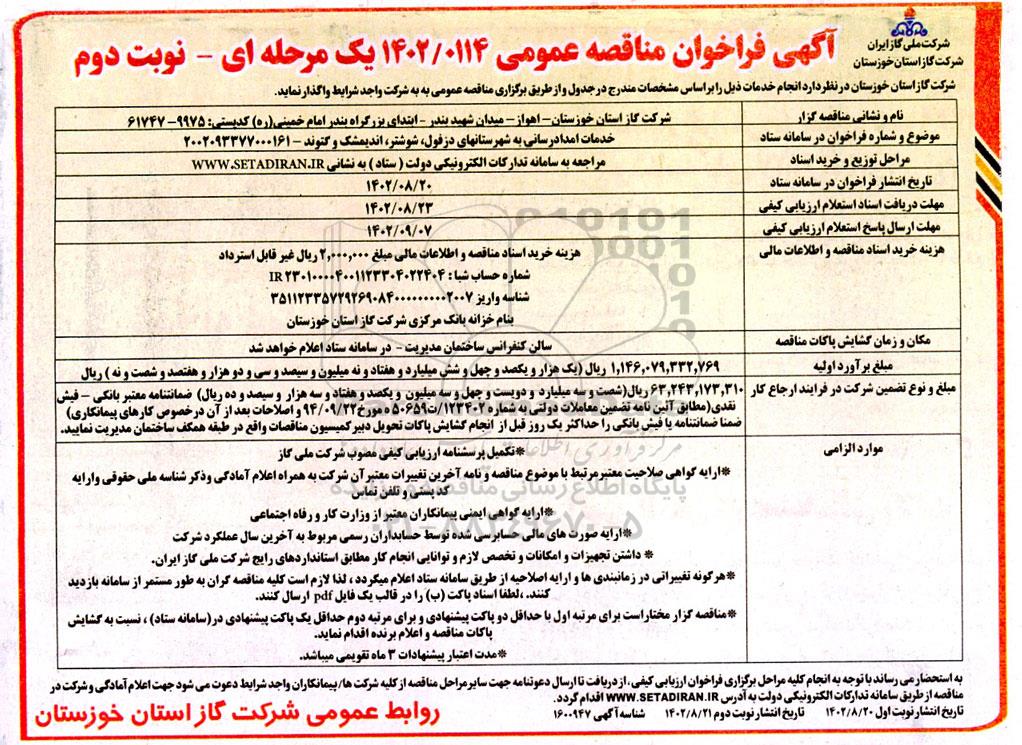 شرکت ملی گاز ایران
شرکت گاز استان خوزستان
آگهی فراخوان مناقصه عمومی ۱۴۰۲/۰۱۱۴ یک مرحله ای - نوبت دوم
شرکت گاز استان خوزستان در نظر دارد انجام خدمات ذیل را بر اساس مشخصات مندرج در جدول و از طریق برگزاری مناقصه عمومی به به شرکت واجد شرایط واگذار نماید.
نام و نشانی مناقصه گزار
شرکت گاز استان خوزستان – اهواز – میدان شهید بندر - ابتدای بزرگراه بندر امام خمینی(ره) کدپستی: ۹۹۷۵-۶۱۷۴۷
موضوع و شماره فراخوان در سامانه ستاد
خدمات امدادرسانی به شهرستانهای دزفول، شوشتر، اندیمشک و گتوند – ۲۰۰۲۰۹۳۳۷۷۰۰۰۱۶۱
مراحل توزیع و خرید اسناد
مراجعه به سامانه تدارکات الکترونیکی دولت ( ستاد ) به نشانی WWW.SETADIRAN.IR
تاریخ انتشار فراخوان در سامانه ستاد
۱۴۰۲/۰۸/۲۰
مهلت دریافت اسناد استعلام ارزیابی کیفی
۱۴۰۲/۰۸/۲۳
مهلت ارسال پاسخ استعلام ارزیابی کیفی
۱۴۰۲/۰۹/۰۷
هزینه خرید اسناد مناقصه و اطلاعات مالی
هزینه خرید اسناد مناقصه و اطلاعات مالی مبلغ ۲,۰۰۰,۰۰۰ ریال غیر قابل استرداد
شماره حساب شبا : IR ۲۳۰۱۰۰۰۰۴۰۰۱۱۲۳۳۰۴۰۲۲۴۰۴
شناسه واریز ۳۵۱۱۲۳۳۵۷۲۹۲۶۹۰۸۴۰۰۰۰۰۰۰۰۰۲۰۰۷
بنام خزانه بانک مرکزی شرکت گاز استان خوزستان
مکان و زمان گشایش پاکات مناقصه
سالن کنفرانس ساختمان مدیریت – در سامانه ستاد اعلام خواهد شد
مبلغ برآورد اولیه
۱,۱۴۶,۰۷۹,۳۳۲,۷۶۹ ریال (یک هزار و یکصد و چهل و شش میلیارد و هفتاد و نه میلیون و سیصد و سی و دو هزار و هفتصد و شصت و نه ) ریال
مبلغ و نوع تضمین شرکت در فرایند ارجاع کار
۶۳,۲۴۳,۱۷۳,۳۱۰ ریال(شصت و سه میلیارد و دویست و چهل و سه میلیون و یکصد و هفتاد و سه هزار و سیصد و ده ریال) ضمانتنامه معتبر بانکی – فیش
نقدی(مطابق آئین نامه تضمین معاملات دولتی به شماره ۱۲۳۴۰۲/ت۵۰۶۵۹ ه مورخ ۹۴/۰۹/۲۲ و اصلاحات بعد از آن در خصوص کارهای پیمانکاری)
ضمنا ضمانتنامه یا فیش بانکی را حداکثر یک روز قبل از انجام گشایش پاکات تحویل دبیر کمیسیون مناقصات واقع در طبقه همکف ساختمان مدیریت نمایید.
موارد الزامی
*تکمیل پرسشنامه ارزیابی کیفی مصوب شرکت ملی گاز
*ارایه گواهی صلاحیت معتبر مرتبط با موضوع مناقصه و نامه آخرین تغییرات معتبر آن شرکت به همراه اعلام آمادگی وذکر شناسه ملی حقوقی وارایه
کد پستی و تلفن تماس
*ارایه گواهی ایمنی پیمانکاران معتبر از وزارت کار و رفاه اجتماعی
*ارایه صورت های مالی حسابرسی شده توسط حسابداران رسمی مربوط به آخرین سال عملکرد شرکت
* داشتن تجهیزات و امکانات و تخصص لازم و توانایی انجام کار مطابق استانداردهای رایج شرکت ملی گاز ایران.
*هرگونه تغییراتی در زمانبندی ها و ارایه اصلاحیه از طریق سامانه ستاد اعلام میگردد ، لذا لازم است کلیه مناقصه گران به طور مستمر از سامانه بازدید
کنند. ،لطفا اسناد پاکت (ب) را در قالب یک فایل pdf ارسال کنند.
*مناقصه گزار مختاراست برای مرتبه اول با حداقل دو پاکت پیشنهادی و برای مرتبه دوم حداقل یک پاکت پیشنهادی در(سامانه ستاد) ، نسبت به گشایش
پاکات مناقصه و اعلام برنده اقدام نماید.
*مدت اعتبار پیشنهادات ۳ ماه تقویمی میباشد.
به استحضار می رساند با توجه به انجام کلیه مراحل برگزاری فراخوان ارزیابی کیفی ، از دریافت تا ارسال دعوتنامه جهت سایر مراحل مناقصه از کلیه شرکت ها/ پیمانکاران واجد شرایط دعوت می شود جهت اعلام آمادگی و شرکت در
مناقصه از طریق سامانه تدارکات الکترونیکی دولت به آدرس WWW.SETADIRAN.IR اقدام گردد.
تاریخ انتشار نوبت اول ۱۴۰۲/۸/۲۰ تاریخ انتشار نوبت دوم ۱۴۰۲/۸/۲۱ شناسه آگهی ۱۶۰۰۹۴۷
روابط عمومی شرکت گاز استان خوزستان
پایگاه اطلاع رسانی مناقصه
۰۲۱-۸۸۳۴۹۶۷۰-۵